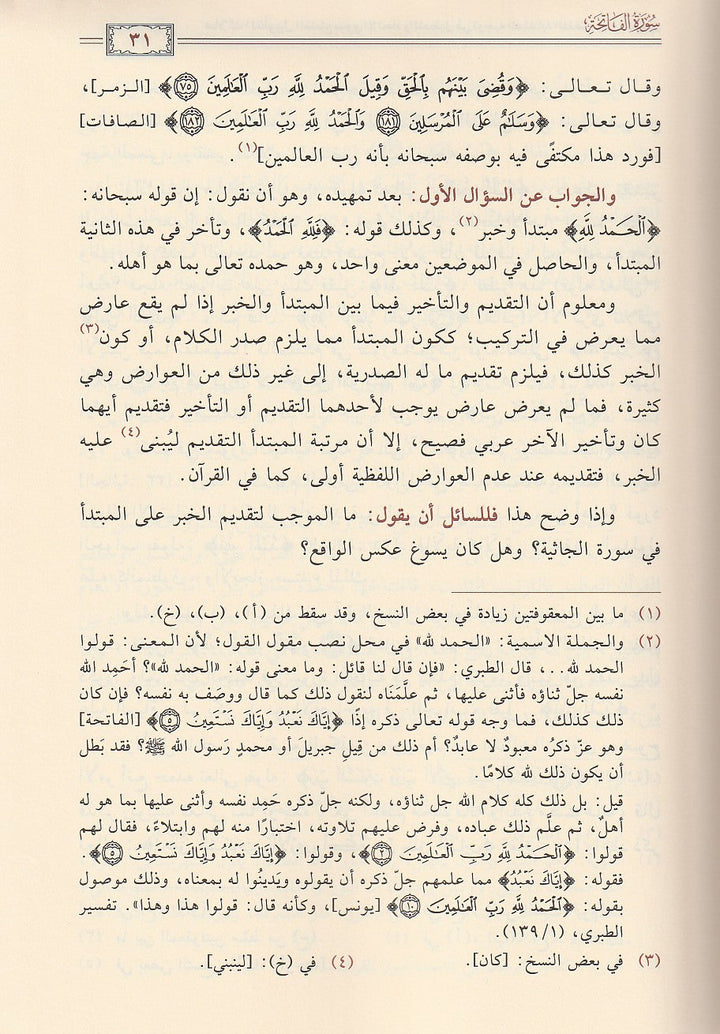 سُورَةُ الفَاتِحَة
٣١
وقال تعالى: ﴿وَقُضِىَ بَيْنَهُم بِالْحَقِّ وَقِيلَ الْحَمْدُ لِلَّهِ رَبِّ الْعَالَمِينَ ﴿٧٥﴾﴾ [الزمر]،
وقال تعالى: ﴿وَسَلَامٌ عَلَى الْمُرْسَلِينَ ﴿١٨١﴾ وَالْحَمْدُ لِلَّهِ رَبِّ الْعَالَمِينَ ﴿١٨٢﴾﴾ [الصافات]
[فورد هذا مكتفًى فيه بوصفه سبحانه بأنه رب العالمين](١).
والجواب عن السؤال الأول: بعد تمهيده، وهو أن نقول: إن قوله سبحانه:
﴿الْحَمْدُ لِلَّهِ﴾ مبتدأ وخبر(٢)، وكذلك قوله: ﴿فَلِلَّهِ الْحَمْدُ﴾، وتأخر في هذه الثانية
المبتدأ، والحاصل في الموضعين معنى واحد، وهو حمده تعالى بما هو أهله.
ومعلوم أن التقديم والتأخير فيما بين المبتدأ والخبر إذا لم يقع عارض
مما يعرض في التركيب؛ ككون المبتدأ مما يلزم صدر الكلام، أو كون(٣)
الخبر كذلك، فيلزم تقديم ما له الصدرية، إلى غير ذلك من العوارض وهي
كثيرة، فما لم يعرض عارض يوجب لأحدهما التقديم أو التأخير فتقديم أيهما
كان وتأخير الآخر عربي فصيح، إلا أن مرتبة المبتدأ التقديم ليُبنى(٤) عليه
الخبر، فتقديمه عند عدم العوارض اللفظية أولى، كما في القرآن.
وإذا وضح هذا فللسائل أن يقول: ما الموجب لتقديم الخبر على المبتدأ
في سورة الجاثية؟ وهل كان يسوغ عكس الواقع؟
(١) ما بين المعقوفتين زيادة في بعض النسخ، وقد سقط من (أ)، (ب)، (خ).
(٢) والجملة الاسمية: «الحمد لله» في محل نصب مقول القول؛ لأن المعنى: قولوا
الحمد لله...، قال الطبري: «فإن قال لنا قائل: وما معنى قوله: «الحمد لله»؟ أحَمِد الله
نفسه جلّ ثناؤه فأثنى عليها، ثم علَّمَنَاه لنقول ذلك كما قال ووصَف به نفسه؟ فإن كان
ذلك كذلك، فما وجه قوله تعالى ذكره إذًا ﴿إِيَّاكَ نَعْبُدُ وَإِيَّاكَ نَسْتَعِينُ ﴿٥﴾﴾ [الفاتحة]
وهو عزّ ذكرُه معبودٌ لا عابدٌ؟ أم ذلك من قِيلِ جبريلَ أو محمدٍ رَسول الله ﷺ؟ فقد بَطل
أن يكون ذلك لله كلامًا.
قيل: بل ذلك كله كلام الله جل ثناؤه، ولكنه جلّ ذكره حَمِد نفسه وأثنى عليها بما هو له
أهلٌ، ثم علَّم ذلك عباده، وفرض عليهم تلاوته، اختبارًا منه لهم وابتلاءً، فقال لهم
قولوا: ﴿الْحَمْدُ لِلَّهِ رَبِّ الْعَالَمِينَ ﴿٢﴾﴾، وقولوا: ﴿إِيَّاكَ نَعْبُدُ وَإِيَّاكَ نَسْتَعِينُ ﴿٥﴾﴾.
فقوله: ﴿إِيَّاكَ نَعْبُدُ﴾ مما علمهم جلّ ذكره أن يقولوه ويَدينُوا له بمعناه، وذلك موصول
بقوله: ﴿الْحَمْدُ لِلَّهِ رَبِّ الْعَالَمِينَ ﴿١٠﴾﴾ [يونس]، وكأنه قال: قولوا هذا وهذا». تفسير
الطبري، (١/ ١٣٩).
(٣) في بعض النسخ: [كان]. (٤) في (خ): [لينبني].